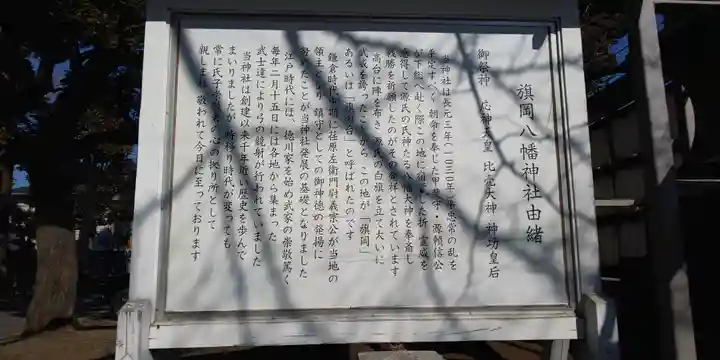 旗岡八幡神社由緒
御祭神 応神天皇 比売大神 神功皇后
当神社は長元三年(一〇三〇年)平忠常の乱を
平定すべく朝命を奉じた甲斐守・源頼信公
が下総へ赴く際この地に宿営した折、霊威を
感得して源氏の氏神たる八幡大神を奉斎し
戦勝を祈願したのがその発祥とされています
高台に陣を布き源氏の白旗を立て大いに
武威を誇ったことから、この地が「旗岡」
あるいは「旗の台」と呼ばれたのです
鎌倉時代後期に荏原左衛門尉義宗公が当地の
領主となり、鎮守としての御神徳の発揚に
努めたことが当神社発展の基礎となりました
江戸時代には、徳川家を始め武家の崇敬篤く
毎年二月十五日には各地から集まった
武士達により弓の競射が行われていました
当神社は創建以来千年近い歴史を歩んで
まいりましたが、時移り時代が変っても
常に氏子崇敬者の心の拠り所として
親しまれ、敬われて今日に至っております